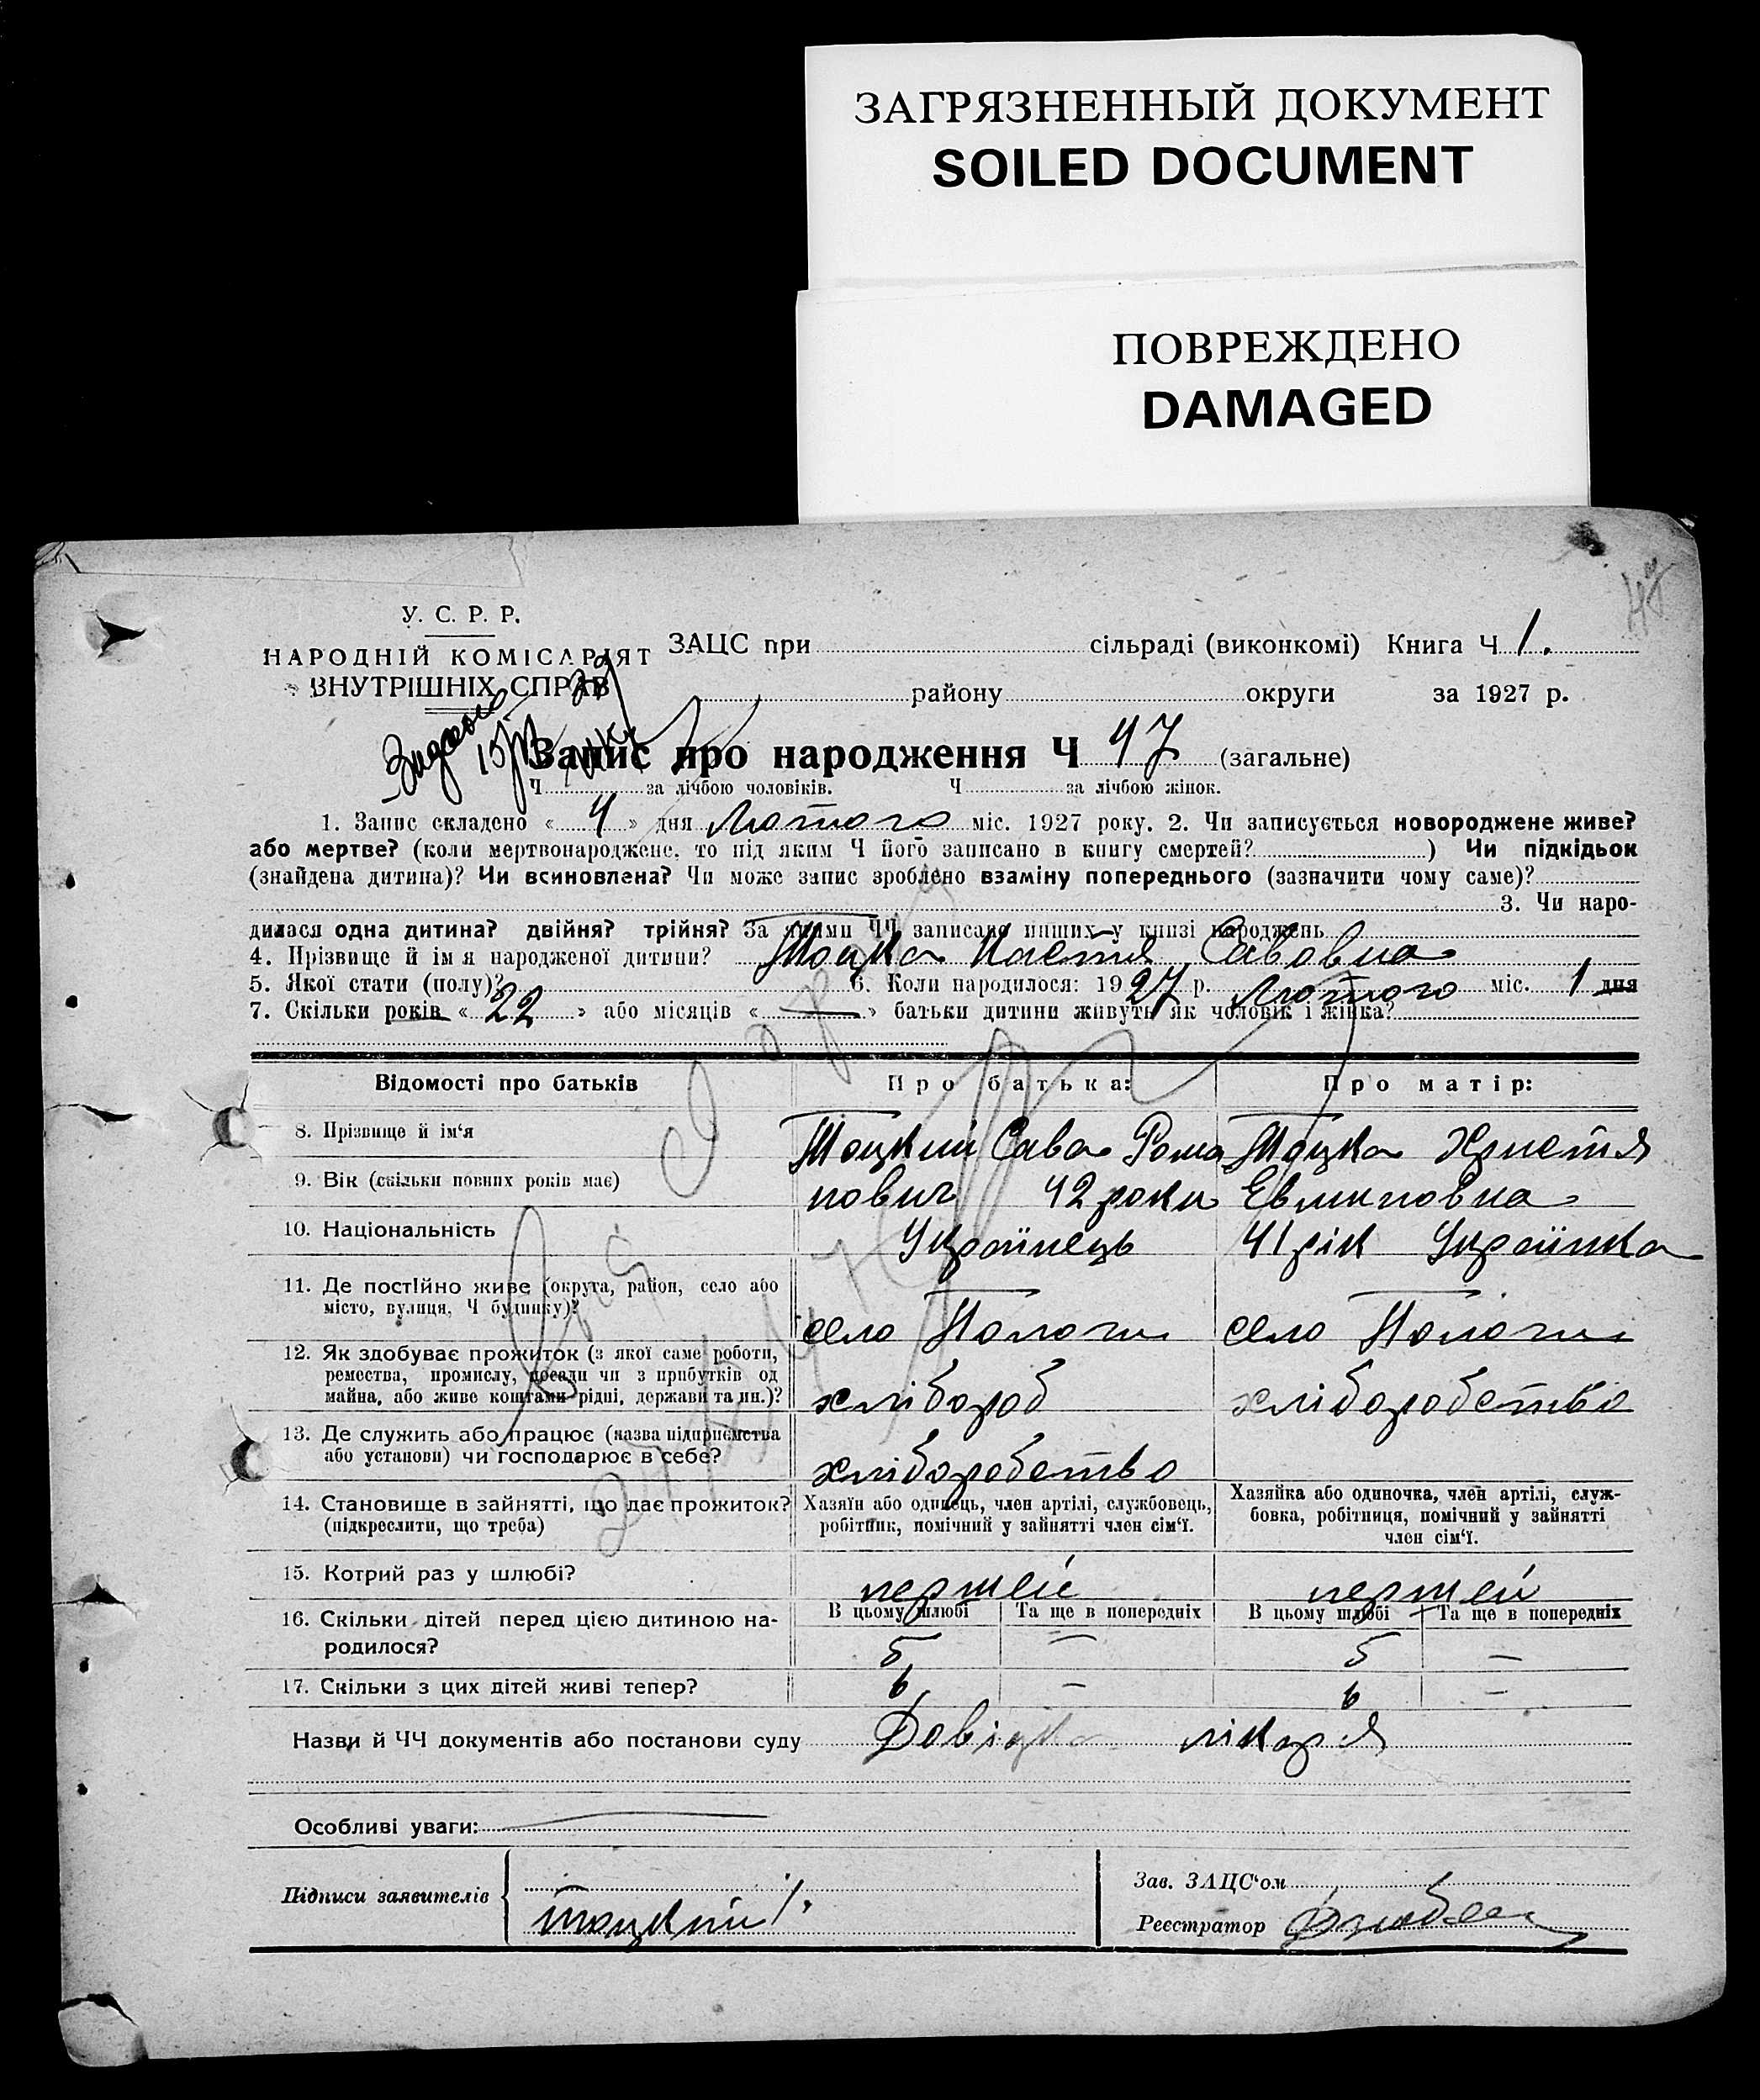 ЗАГРЯЗНЕННЫЙ ДОКУМЕНТ
SOILED DOCUMENT
ПОВРЕЖДЕНО
DAMAGED
У. С. Р. Р.
НАРОДНІЙ КОМІСАРІЯТ
ВНУТРІШНІХ СПРАВ
ЗАЦС при сільраді (виконкомі) Книга Ч 1.
району округи за 1927 р.
Запис про народження Ч 47 (загальне)
Ч за лічбою чоловіків. Ч за лічбою жінок.
1. Запис складено « 4 » дня Лютого міс. 1927 року. 2. Чи записується новороджене живе?
або мертве? (коли мертвонароджене, то під яким Ч його записано в книгу смертей? ) Чи підкідьок
(знайдена дитина)? Чи всиновлена? Чи може запис зроблено взаміну попереднього (зазначити чому саме)?
3. Чи наро-
дилася одна дитина? двійня? трійня? За якими ЧЧ записано инших у книзі народжень
4. Прізвище й ім'я народженої дитини? Тоцка Настя Савовна
5. Якої стати (полу)? 6. Коли народилося: 1927 р. Лютого міс. 1 дня
7. Скільки років « 22 » або місяців « — » батьки дитини живуть як чоловік і жінка?
Відомості про батьків Про батька: Про матір:
8. Прізвище й ім'я Тоцкий Сава Рома Тоцка Христя
9. Вік (скільки повних років має) нович 42 роки Евминовна
10. Національність Українець 41 рік Українка
11. Де постійно живе (округа, район, село або
місто, вулиця, Ч будинку)? село Пологи село Пологи
12. Як здобуває прожиток (з якої саме роботи,
ремества, промислу, посади чи з прибутків од
майна, або живе коштами рідні, держави та ин.)? хлібороб хліборобство
13. Де служить або працює (назва підприємства
або установи) чи господарює в себе? хліборобство
14. Становище в зайнятті, що дає прожиток? Хазяїн або одинець, член артілі, службовець, Хазяйка або одиночка, член артілі, служ-
(підкреслити, що треба) робітник, помічний у зайнятті член сім'ї. бовка, робітниця, помічний у зайнятті
член сім'ї.
15. Котрий раз у шлюбі? першей першей
16. Скільки дітей перед цією дитиною на- В цьому шлюбі Та ще в попередніх В цьому шлюбі Та ще в попередніх
родилося? 5 — 5 —
17. Скільки з цих дітей живі тепер? 6 — 6 —
Назви й ЧЧ документів або постанови суду Довідка лікаря
Особливі уваги:
Підписи заявителів Тоцкий
Зав. ЗАЦС'ом
Реєстратор